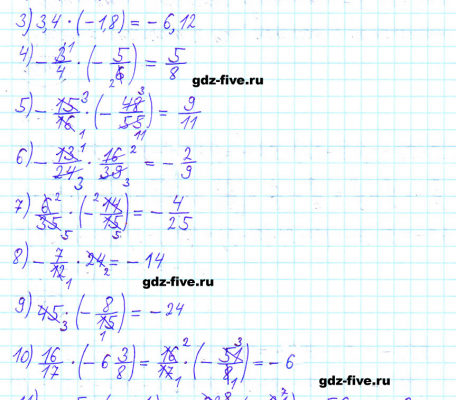 3) 3,4 · (−1,8) = −6,12
4) −3/4 · (−5/6) = 5/8
gdz-five.ru
5) −15/16 · (−48/55) = 9/11
6) −13/24 · 16/39 = −2/9
7) 6/35 · (−14/15) = −4/25
8) −7/12 · 24 = −14
gdz-five.ru
9) 45 · (−8/15) = −24
10) 16/17 · (−6 3/8) = 16/17 · (−51/8) = −6
gdz-five.ru